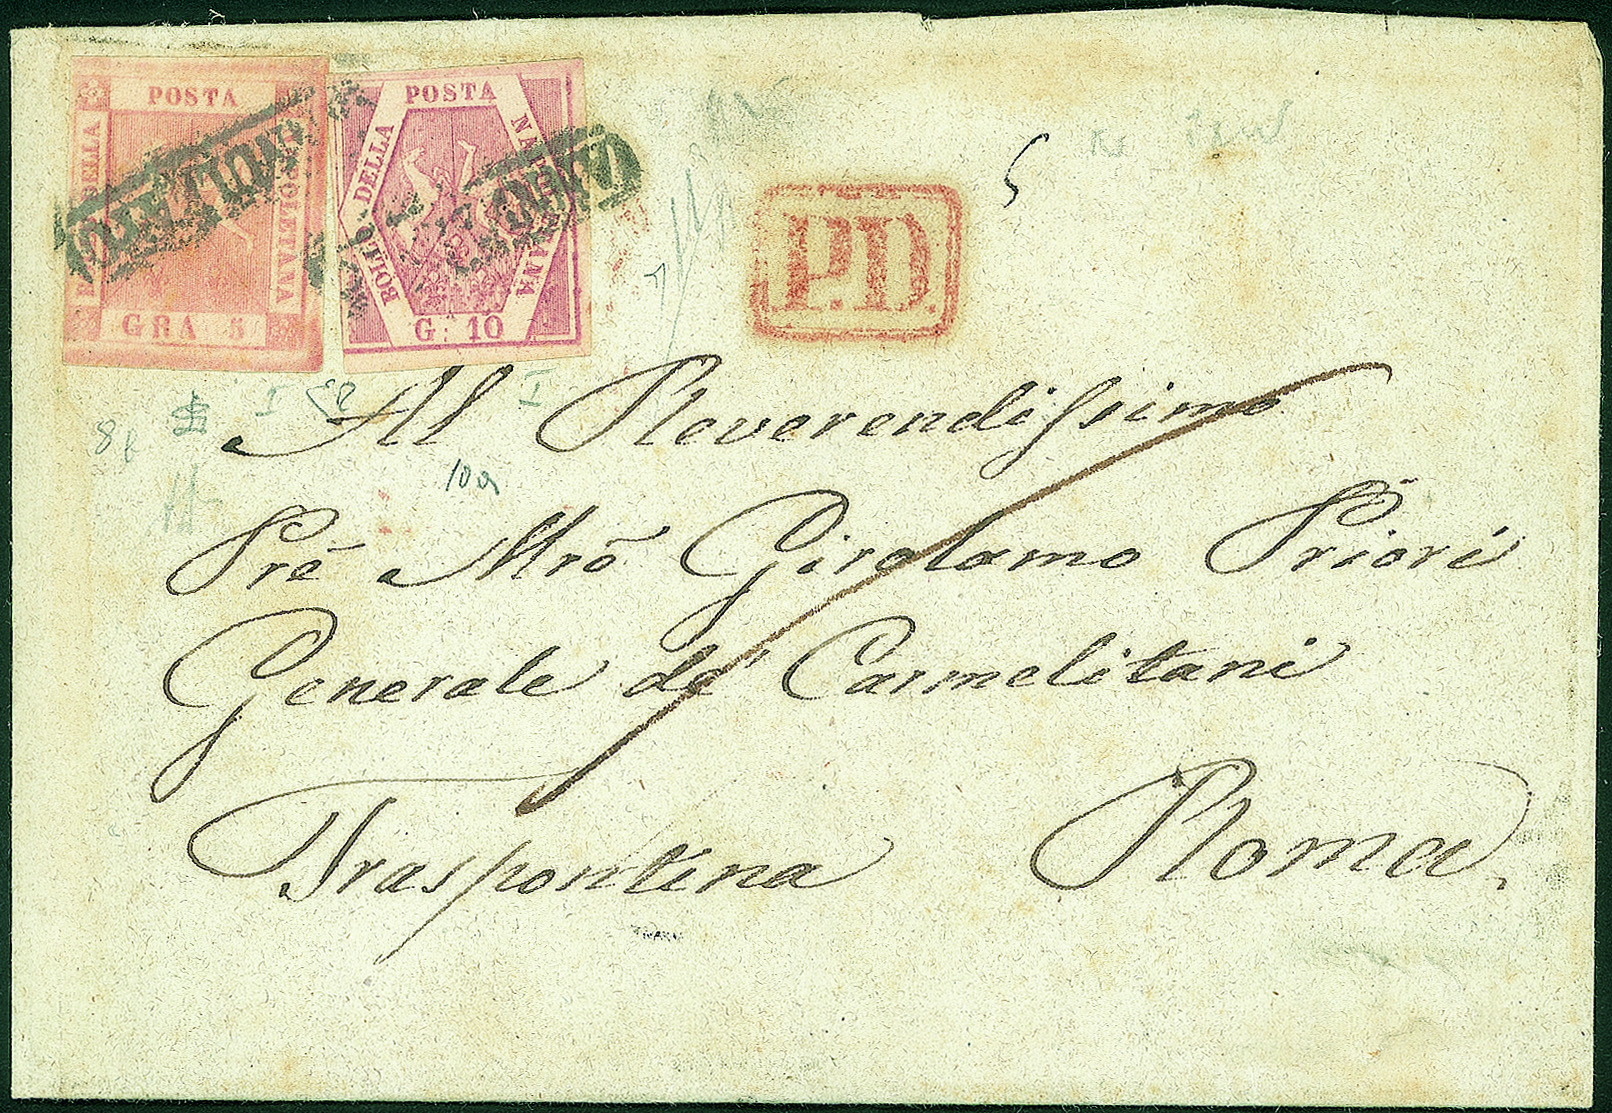 POSTA
BOLLO DELLA
NAPOLETANA
GRA 5
ANNULLATO
POSTA
BOLLO DELLA
NAPOLETANA
G: 10
ANNULLATO
P.D.
8f
I
I
10a
Al Reverendissimo
Prē Mrō Girolamo Priori
Generale de' Carmelitani
Traspontina Roma